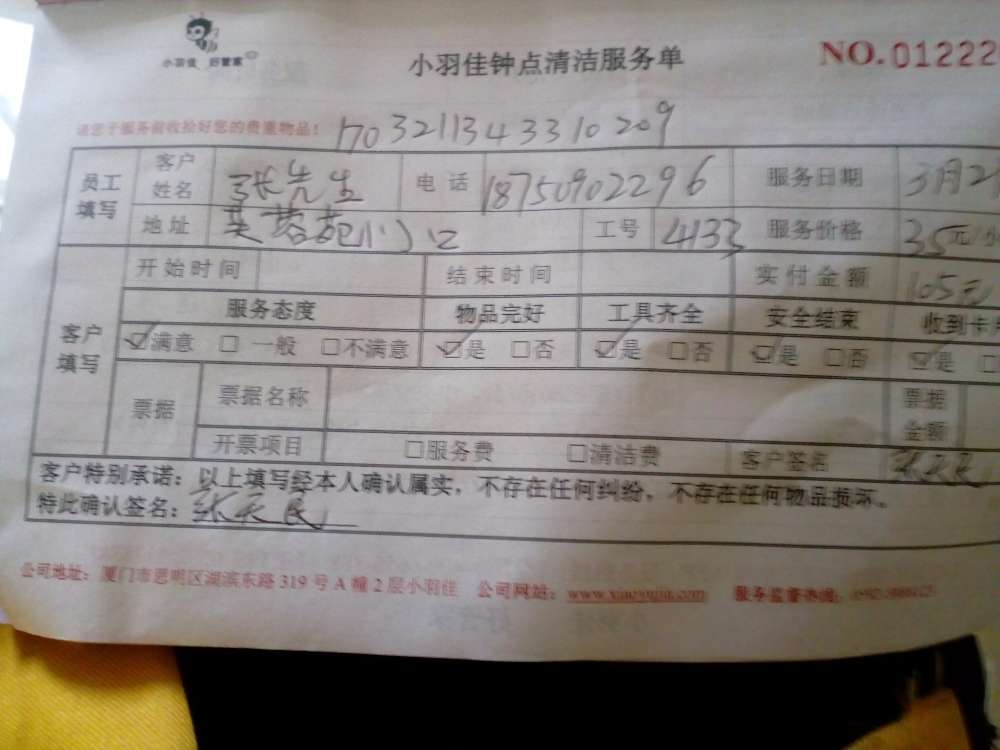 小羽佳 好管家
小羽佳钟点清洁服务单
NO.01222
请您于服务前收拾好您的贵重物品！
1703211343310209
员工填写 客户姓名 张先生 电话 18750902296 服务日期 3月2
地址 芙蓉苑 工号 4133 服务价格 35元/小
客户填写 开始时间 结束时间 实付金额 105元
服务态度 物品完好 工具齐全 安全结束 收到卡
☑满意 □一般 □不满意 ☑是 □否 ☑是 □否 ☑是 □否 ☑是 □
票据 票据名称 票据金额
开票项目 □服务费 □清洁费 客户签名 张天民
客户特别承诺：以上填写经本人确认属实，不存在任何纠纷，不存在任何物品损坏。
特此确认签名：张天民
公司地址：厦门市思明区湖滨东路 319 号 A 幢 2 层小羽佳 公司网站：www.xiaoyujia.com 服务监督热线：